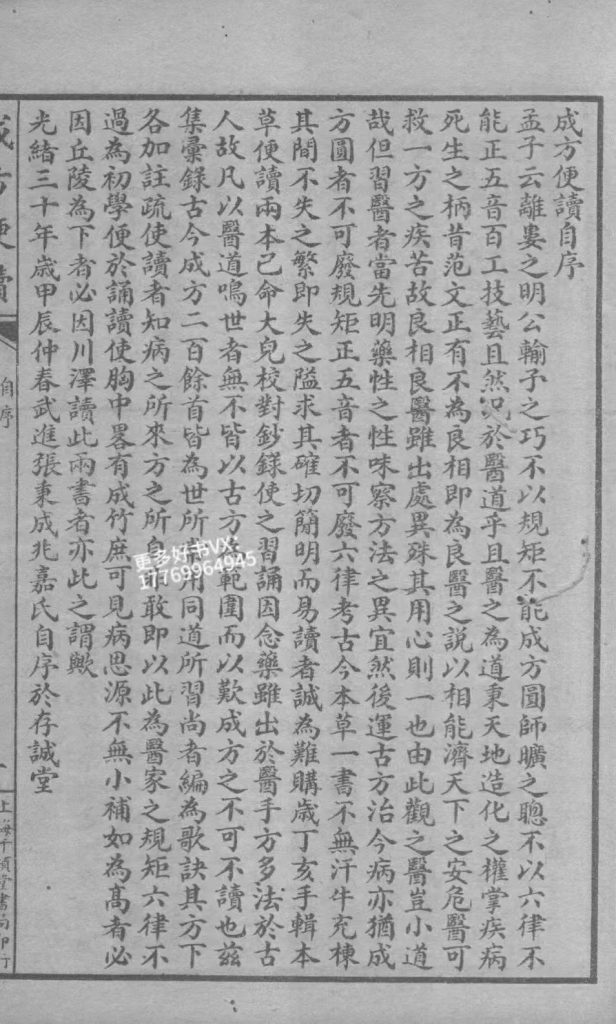 成方便讀自序
孟子云離婁之明公輸子之巧不以規矩不能成方圓師曠之聰不以六律不
能正五音百工技藝且然況於醫道乎且醫之為道秉天地造化之權掌疾病
死生之柄昔范文正有不為良相即為良醫之說以相能濟天下之安危醫可
救一方之疾苦故良相良醫雖出處異殊其用心則一也由此觀之醫豈小道
哉但習醫者當先明藥性之性味察方法之異宜然後運古方治今病亦猶成
方圓者不可廢規矩正五音者不可廢六律考古今本草一書不無汗牛充棟
其間不失之繁即失之隘求其確切簡明而易讀者誠為難購歲丁亥手輯本
草便讀兩本已命大兒校對鈔錄使之習誦因念藥雖出於醫手方多法於古
人故凡以醫道鳴世者無不皆以古方範圍而以歎成方之不可不讀也茲
集彙錄古今成方二百餘首皆為世所常用同道所習尚者編為歌訣其方下
各加註疏使讀者知病之所來方之所自敢即以此為醫家之規矩六律不
過為初學便於誦讀使胸中畧有成竹庶可見病思源不無小補如為高者必
因丘陵為下者必因川澤讀此兩書者亦此之謂歟
光緒三十年歲甲辰仲春武進張秉成兆嘉氏自序於存誠堂
成方便讀
自序
一
上海千頃堂書局印行
更多好书VX:
17769964945